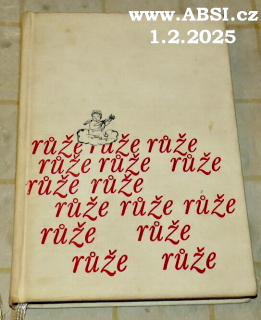 www.ABSI.cz
1.2.2025
růže růže růže
růže růže růže
růže růže
růže růže růže
růže růže
růže růže